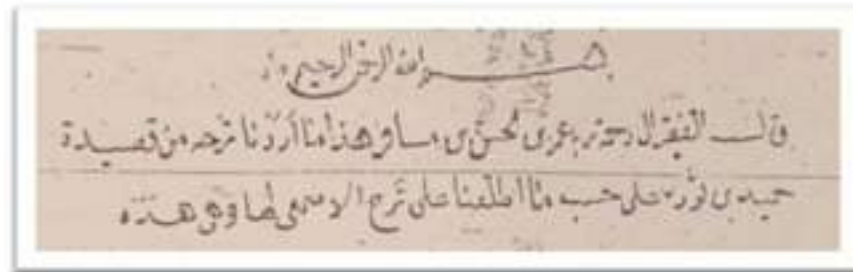 بسم الله الرحمن الرحيم
قال الفقير الى رحمة ربه عمرى لحسن بن مساوي هذا ما أردنا شرحه من قصيدة
حميد بن ثور على حسب ما اطلعنا على شرح الاصمعى لها وهى هذه